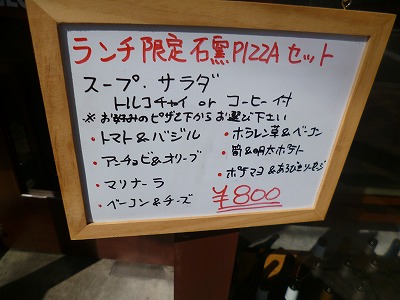 ランチ限定石窯PIZZAセット
スープ・サラダ
トルコチャイ or コーヒー付
※お好みのピザを下からお選び下さい
・トマト&バジル
・アンチョビ&オリーブ
・マリナーラ
・ベーコン&チーズ
・ホウレン草&ベーコン
・筍&明太ポテト
・ポテマヨ&あらびきソーセージ
¥800